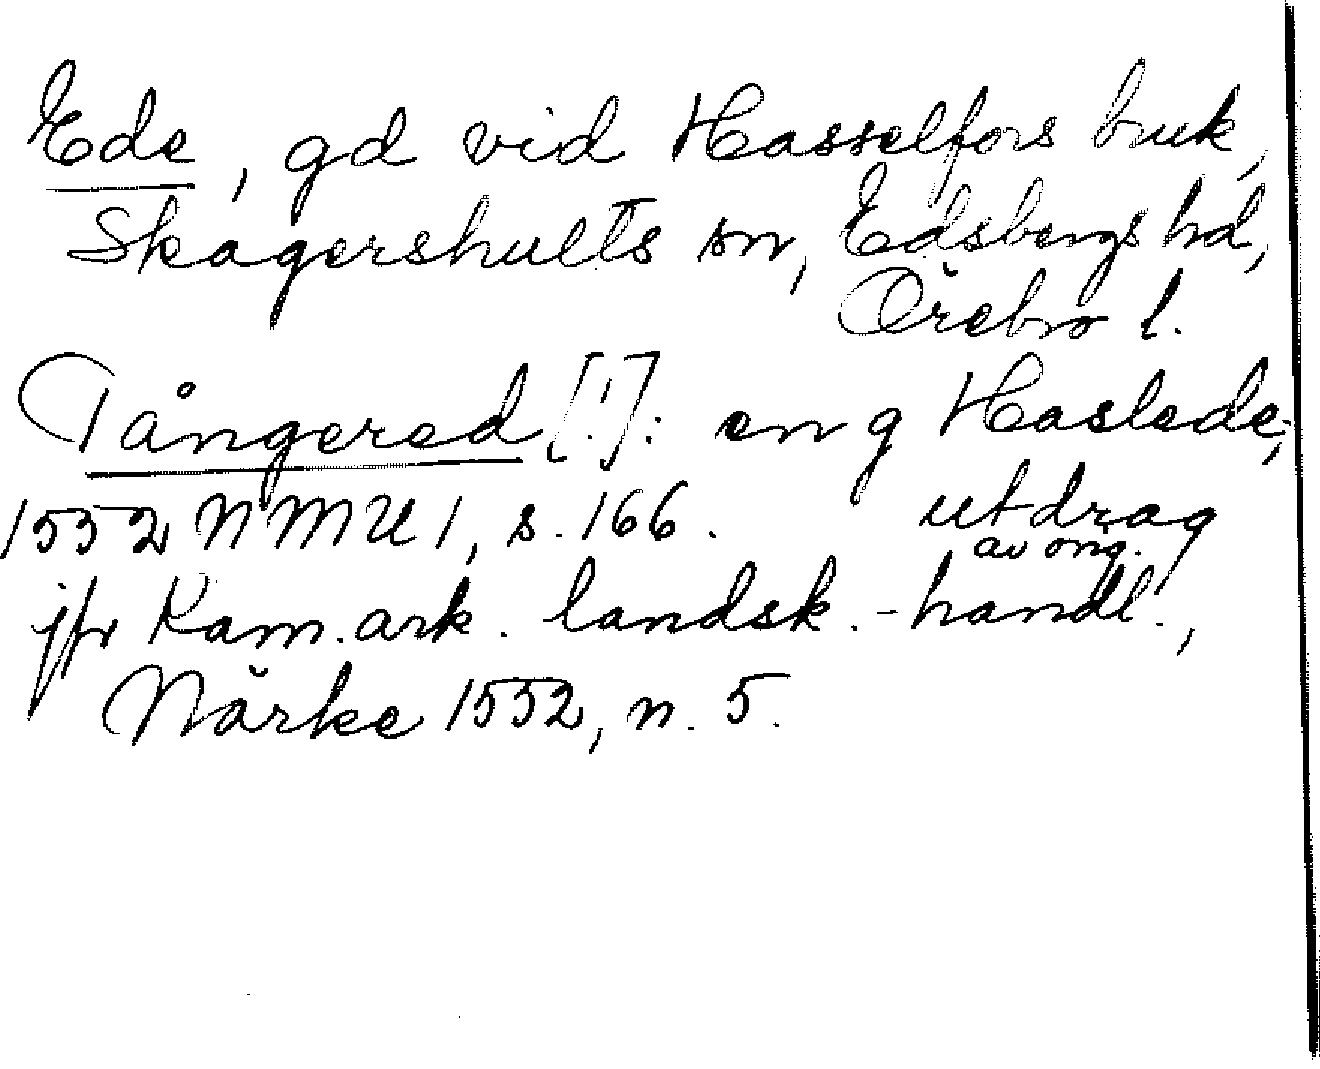 Ede, gd vid Hasselfors bruk,
Skagershults sn, Edsbergs hd,
Örebro l.
Tångered [!]: en g Haslede;
1552 NMU 1, s. 166. utdrag
av orig.
jfr Kam. ark. landsk.-handl.,
Närke 1552, n. 5.